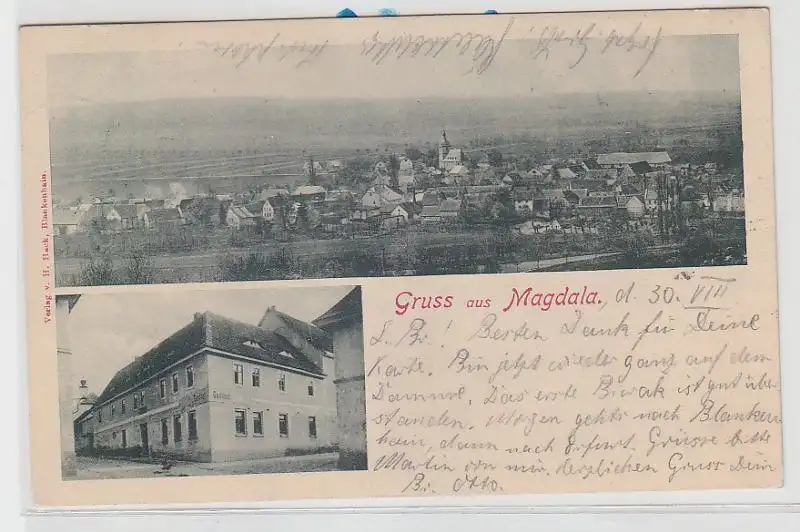 Gruss aus Magdala. d. 30. VIII
L. Br.! Besten Dank für Deine
Karte. Bin jetzt wieder ganz auf dem
Damme. Das erste Biwak ist gut über
standen. Morgen gehts nach Blanken
hain, dann nach Erfurt. Grüsse bitte
Martin von mir. Herzlichen Gruss Dein
Br. Otto.
Verlag v. H. Hack, Blankenhain.
Gasthof